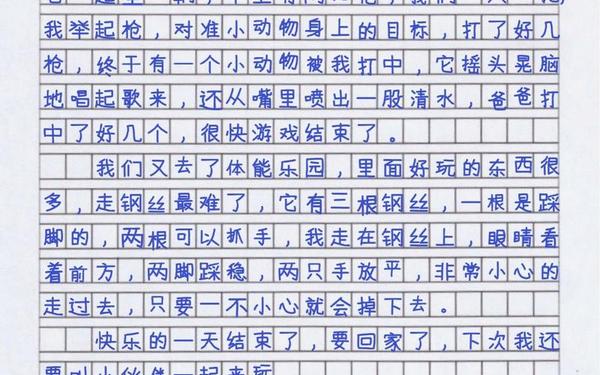 我举起枪，对准小动物身上的目标，打了好几
枪，终于有一个小动物被我打中，它摇头晃脑
地唱起歌来，还从嘴里喷出一股清水，爸爸打
中了好几个，很快游戏结束了。
我们又去了体能乐园，里面好玩的东西很
多，走钢丝最难了，它有三根钢丝，一根是踩
脚的，两根可以抓手，我走在钢丝上，眼睛看
着前方，两脚踩稳，两只手放平，非常小心的
走过去，只要一不小心就会掉下去。
快乐的一天结束了，要回家了，下次我还
要叫小伙伴一起来玩